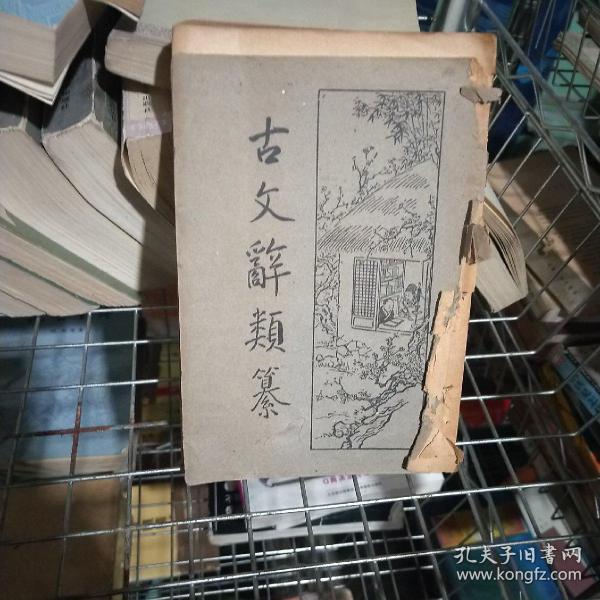 古文辭類纂
孔夫子旧书网
www.kongfz.com